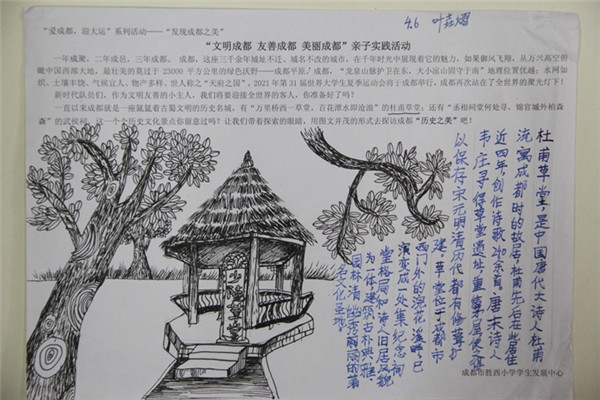 4.6 叶焱熠
“爱成都，迎大运”系列活动——“发现成都之美”
“文明成都 友善成都 美丽成都”亲子实践活动
一年成聚，二年成邑，三年成都。成都，这座三千余年城址不迁、城名不改的城市，在千年时光中展现着它的魅力，如果御风飞翔，从万尺高空俯
瞰中国西部大地，最壮美的莫过于 23000 平方公里的绿色沃野——成都平原！成都，“龙泉山脉护卫在东，大小凉山固守于南”地理位置优越；水网如
织，土壤丰饶，气候宜人，物产多样，世人称之“天府之国”。2021 年第 31 届世界大学生夏季运动会将于成都举行，成都再次站在了全世界的聚光灯下！
新时代队员们，作为文明友善的小主人，我们将要迎接全世界的客人，你准备好了吗？
一直以来成都就是一座氤氲着古蜀文明的历史名城，有“万里桥西一草堂，百花潭水即沧浪”的杜甫草堂；还有“丞相祠堂何处寻，锦官城外柏森
森”的武侯祠，这一个个历史文化景点你留意过吗？让我们带着探索的眼睛，用图文并茂的形式去探访成都“历史之美”吧！
杜甫草堂，是中国唐代大诗人杜甫
流寓成都时的故居，杜甫先后在此居住
近四年，创作诗歌240余首，唐末诗人
韦庄寻得草堂遗址，重結茅屋，使之得
以保存，宋元明清历代都有修葺扩
建，草堂位于成都市
西门外的浣花溪畔，已
演变成一处集纪念祠
堂格局和诗人旧居风貌
为一体，建筑古朴典雅、
园林清幽秀丽的著
名文化圣地。
少陵草堂
成都市胜西小学学生发展中心